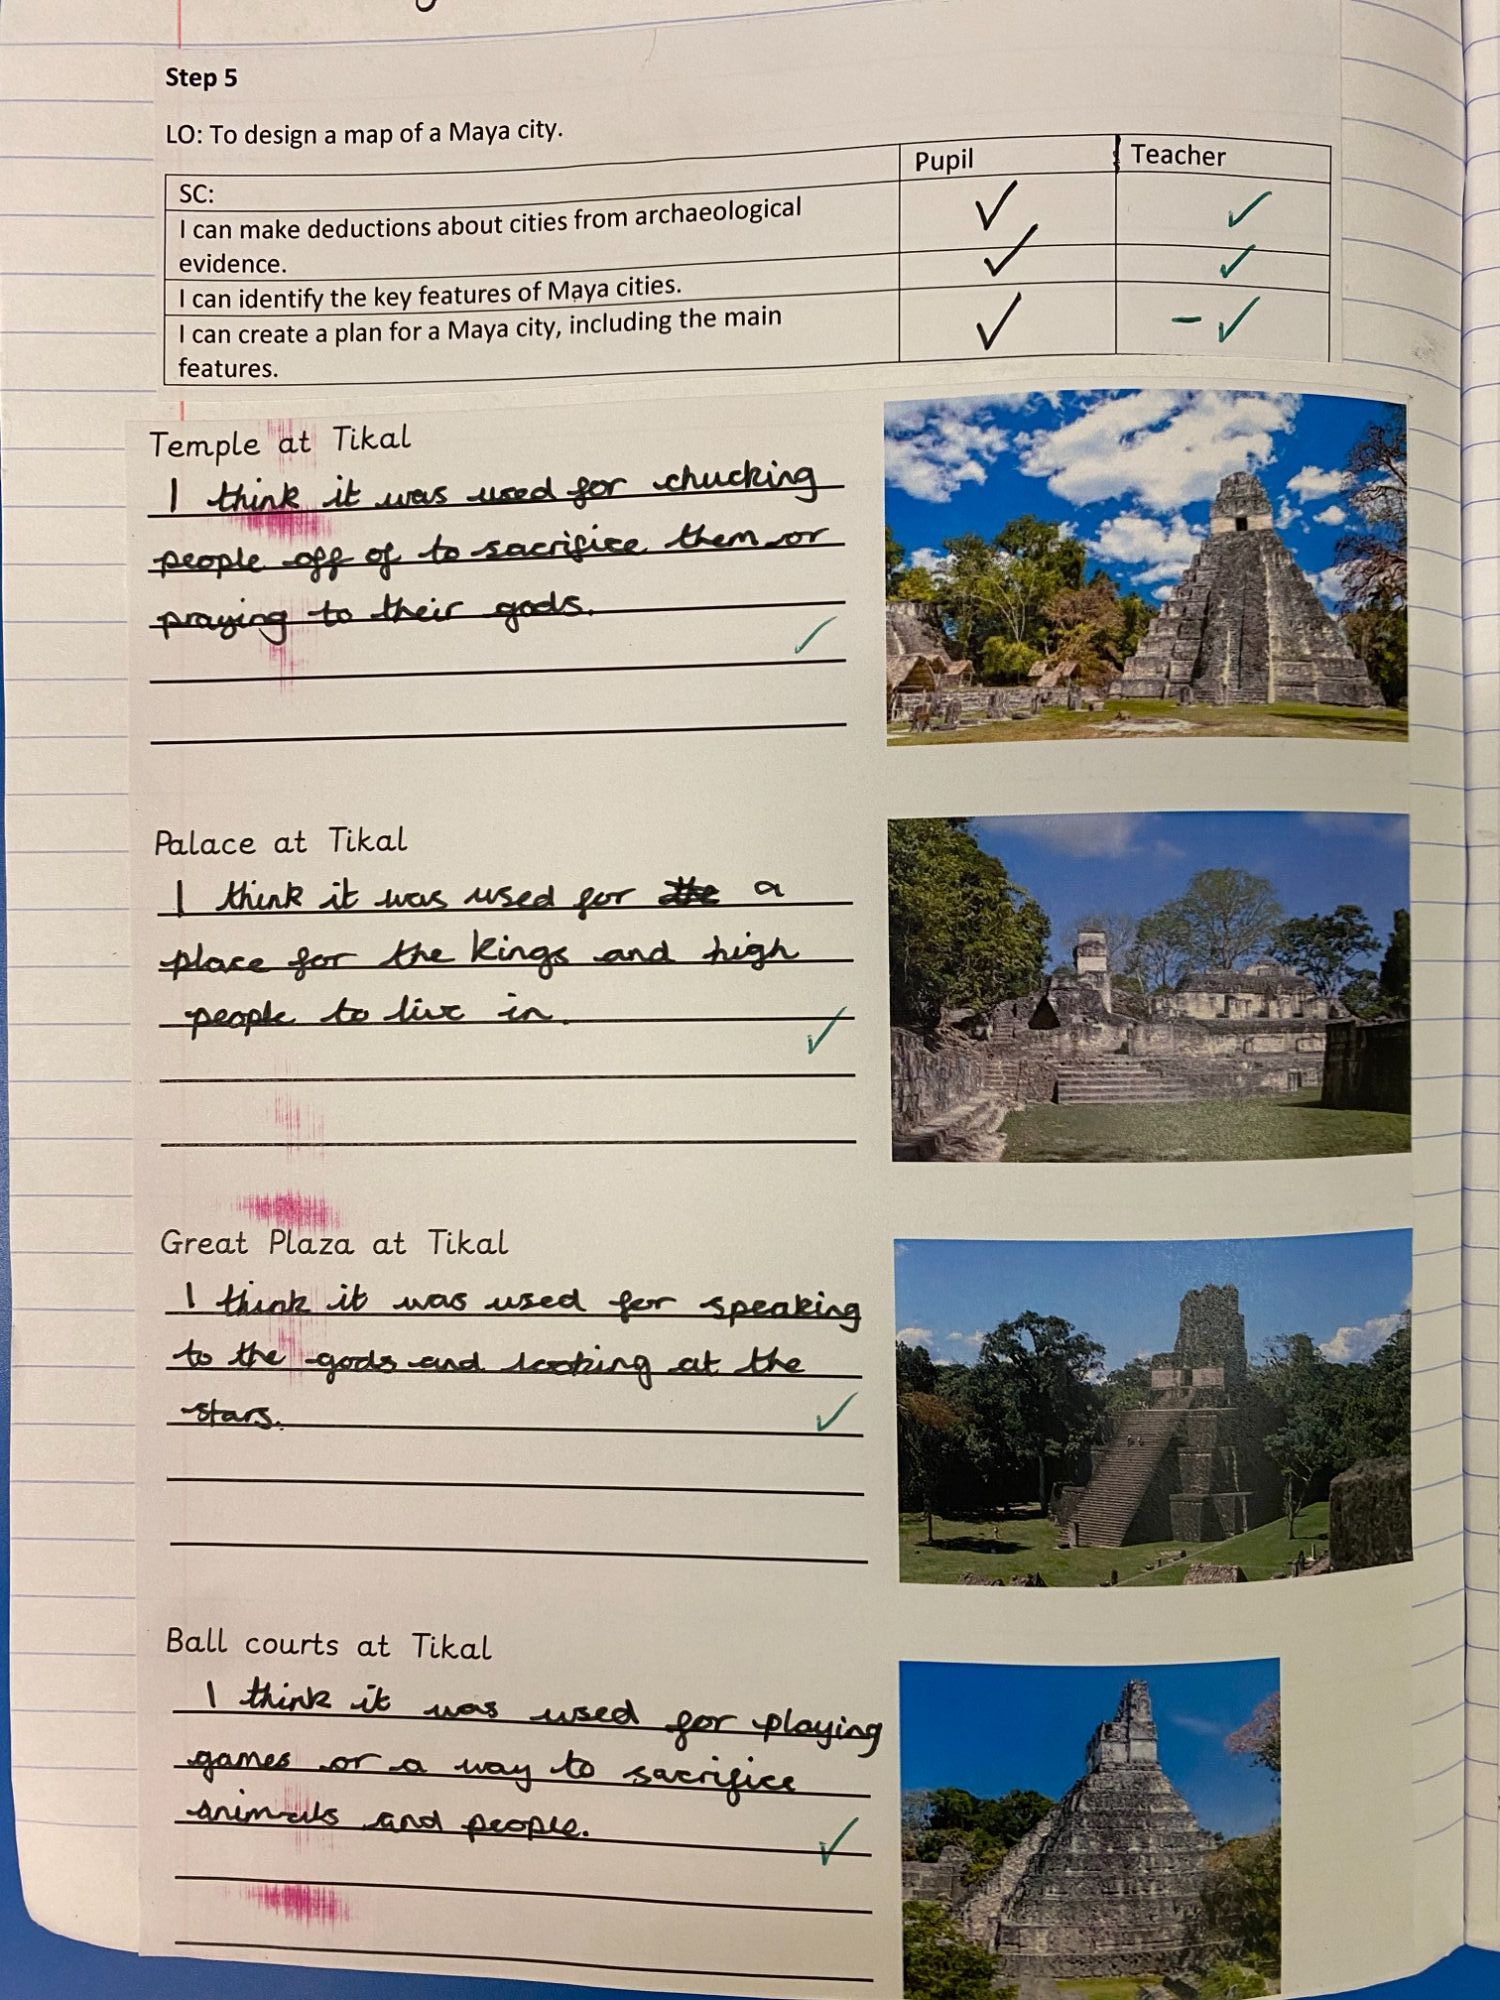 Step 5
LO: To design a map of a Maya city.
Pupil
Teacher
SC:
I can make deductions about cities from archaeological
evidence.
I can identify the key features of Maya cities.
I can create a plan for a Maya city, including the main
features.
Temple at Tikal
I think it was used for chucking
people off of to sacrifice them or
praying to their gods.
Palace at Tikal
I think it was used for a
place for the kings and high
people to live in.
Great Plaza at Tikal
I think it was used for speaking
to the gods and looking at the
stars.
Ball courts at Tikal
I think it was used for playing
games or a way to sacrifice
animals and people.